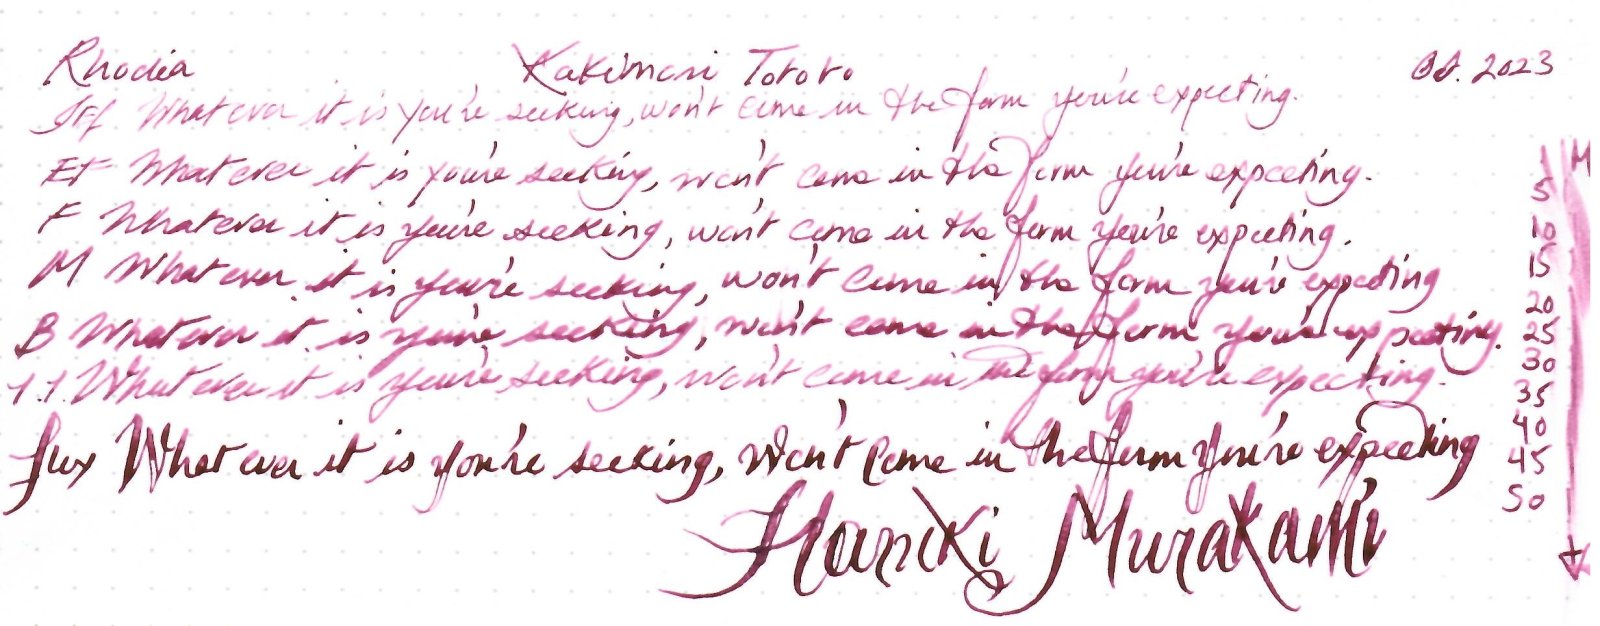 Rhodia Kakimori Tototo Oct. 2023
Jef Whatever it is you're seeking, won't come in the form you're expecting.
EF Whatever it is you're seeking, won't come in the form you're expecting.
F Whatever it is you're seeking, won't come in the form you're expecting.
M Whatever it is you're seeking, won't come in the form you're expecting
B Whatever it is you're seeking, won't come in the form you're expecting.
1.1 Whatever it is you're seeking, won't come in the form you're expecting.
flex Whatever it is you're seeking, won't come in the form you're expecting
Haruki Murakami
1 M
5
10
15
20
25
30
35
40
45
50